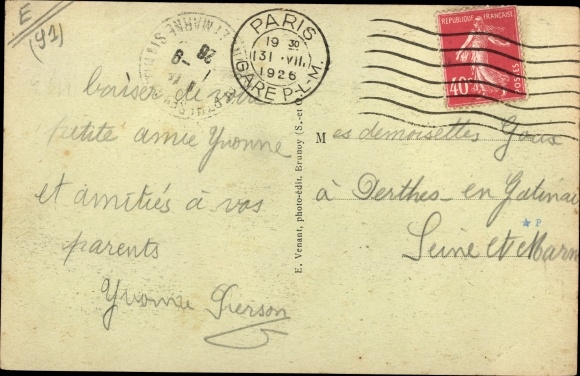 E
(91)
PARIS
19 30
31 ·VII
1926
GARE P.-L.-M.
REPUBLIQUE FRANÇAISE
40c
POSTES
ET MARNE
28
8-9
Un baiser de votre
petite amie Yvonne
et amitiés à vos
parents
Yvonne Pierson
E. Venant, photo-édit. Brunoy (S.-et-O
Mes demoiselles
à Perthes-en Gatinai
Seine et Marn
P